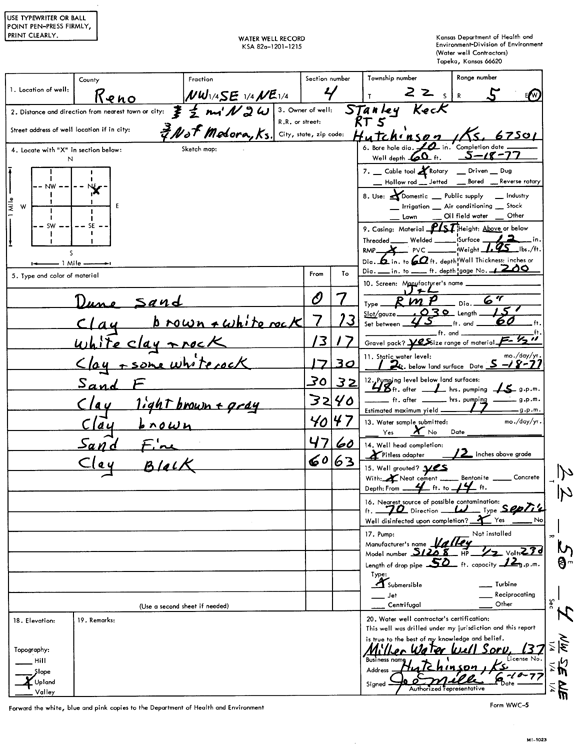 USE TYPEWRITER OR BALL
POINT PEN-PRESS FIRMLY,
PRINT CLEARLY.
WATER WELL RECORD
KSA 82a-1201-1215
Kansas Department of Health and
Environment-Division of Environment
(Water well Contractors)
Topeka, Kansas 66620
1. Location of well:
County
Reno
Fraction
NW 1/4 SE 1/4 NE 1/4
Section number
4
Township number
T 22 S
Range number
R 5 E W
2. Distance and direction from nearest town or city: 1/2 mi N 2 W
Street address of well location if in city: 3/4 N of Medora, Ks.
3. Owner of well: Stanley Keck
R.R. or street: RT 5
City, state, zip code: Hutchinson, Ks. 67501
4. Locate with "X" in section below:
Sketch map:
N
NW NE
W E
SW SE
S
1 Mile
1 Mile
6. Bore hole dia. 10 in. Completion date
Well depth 60 ft. 5-18-77
7. Cable tool X Rotary Driven Dug
Hollow rod Jetted Bored Reverse rotary
8. Use: X Domestic Public supply Industry
Irrigation Air conditioning Stock
Lawn Oil field water Other
9. Casing: Material Plst Height: Above or below
Threaded Welded Surface 12 in.
RMP X PVC Weight 1.95 lbs./ft.
Dia. 6 in. to 60 ft. depth Wall Thickness: inches or
Dia. in. to ft. depth gage No. .200
5. Type and color of material From To
Dune Sand 0 7
Clay brown + white rock 7 13
White clay + rock 13 17
Clay + some white rock 17 30
Sand F 30 32
Clay light brown + gray 32 40
Clay brown 40 47
Sand Fine 47 60
Clay Black 60 63
(Use a second sheet if needed)
10. Screen: Manufacturer's name
J+L
Type RMP Dia. 6"
Slot/gauze .030 Length 15'
Set between 45 ft. and 60 ft.
ft. and ft.
Gravel pack? yes Size range of material F-1/2"
11. Static water level: mo./day/yr.
12 ft. below land surface Date 5-18-77
12. Pumping level below land surfaces:
48 ft. after 1 hrs. pumping 15 g.p.m.
ft. after hrs. pumping g.p.m.
Estimated maximum yield 17 g.p.m.
13. Water sample submitted: mo./day/yr.
Yes X No Date
14. Well head completion:
X Pitless adapter 12 Inches above grade
15. Well grouted? yes
With: X Neat cement Bentonite Concrete
Depth: From 4 ft. to 14 ft.
16. Nearest source of possible contamination:
ft. 70 Direction W Type Septic
Well disinfected upon completion? X Yes No
17. Pump: Not installed
Manufacturer's name Valley
Model number S1208 HP 1/2 Volts 230
Length of drop pipe 50 ft. capacity 12 g.p.m.
Type:
X Submersible Turbine
Jet Reciprocating
Centrifugal Other
18. Elevation:
Topography:
Hill
Slope
X Upland
Valley
19. Remarks:
20. Water well contractor's certification:
This well was drilled under my jurisdiction and this report
is true to the best of my knowledge and belief.
Miller Water Well Serv. 137
Business name License No.
Address Hutchinson, Ks
Signed Joe Miller Date 6-10-77
Authorized representative
Forward the white, blue and pink copies to the Department of Health and Environment
Form WWC-5
T 22 - R 5 E W - Sec 4 NW 1/4 SE 1/4 NE 1/4